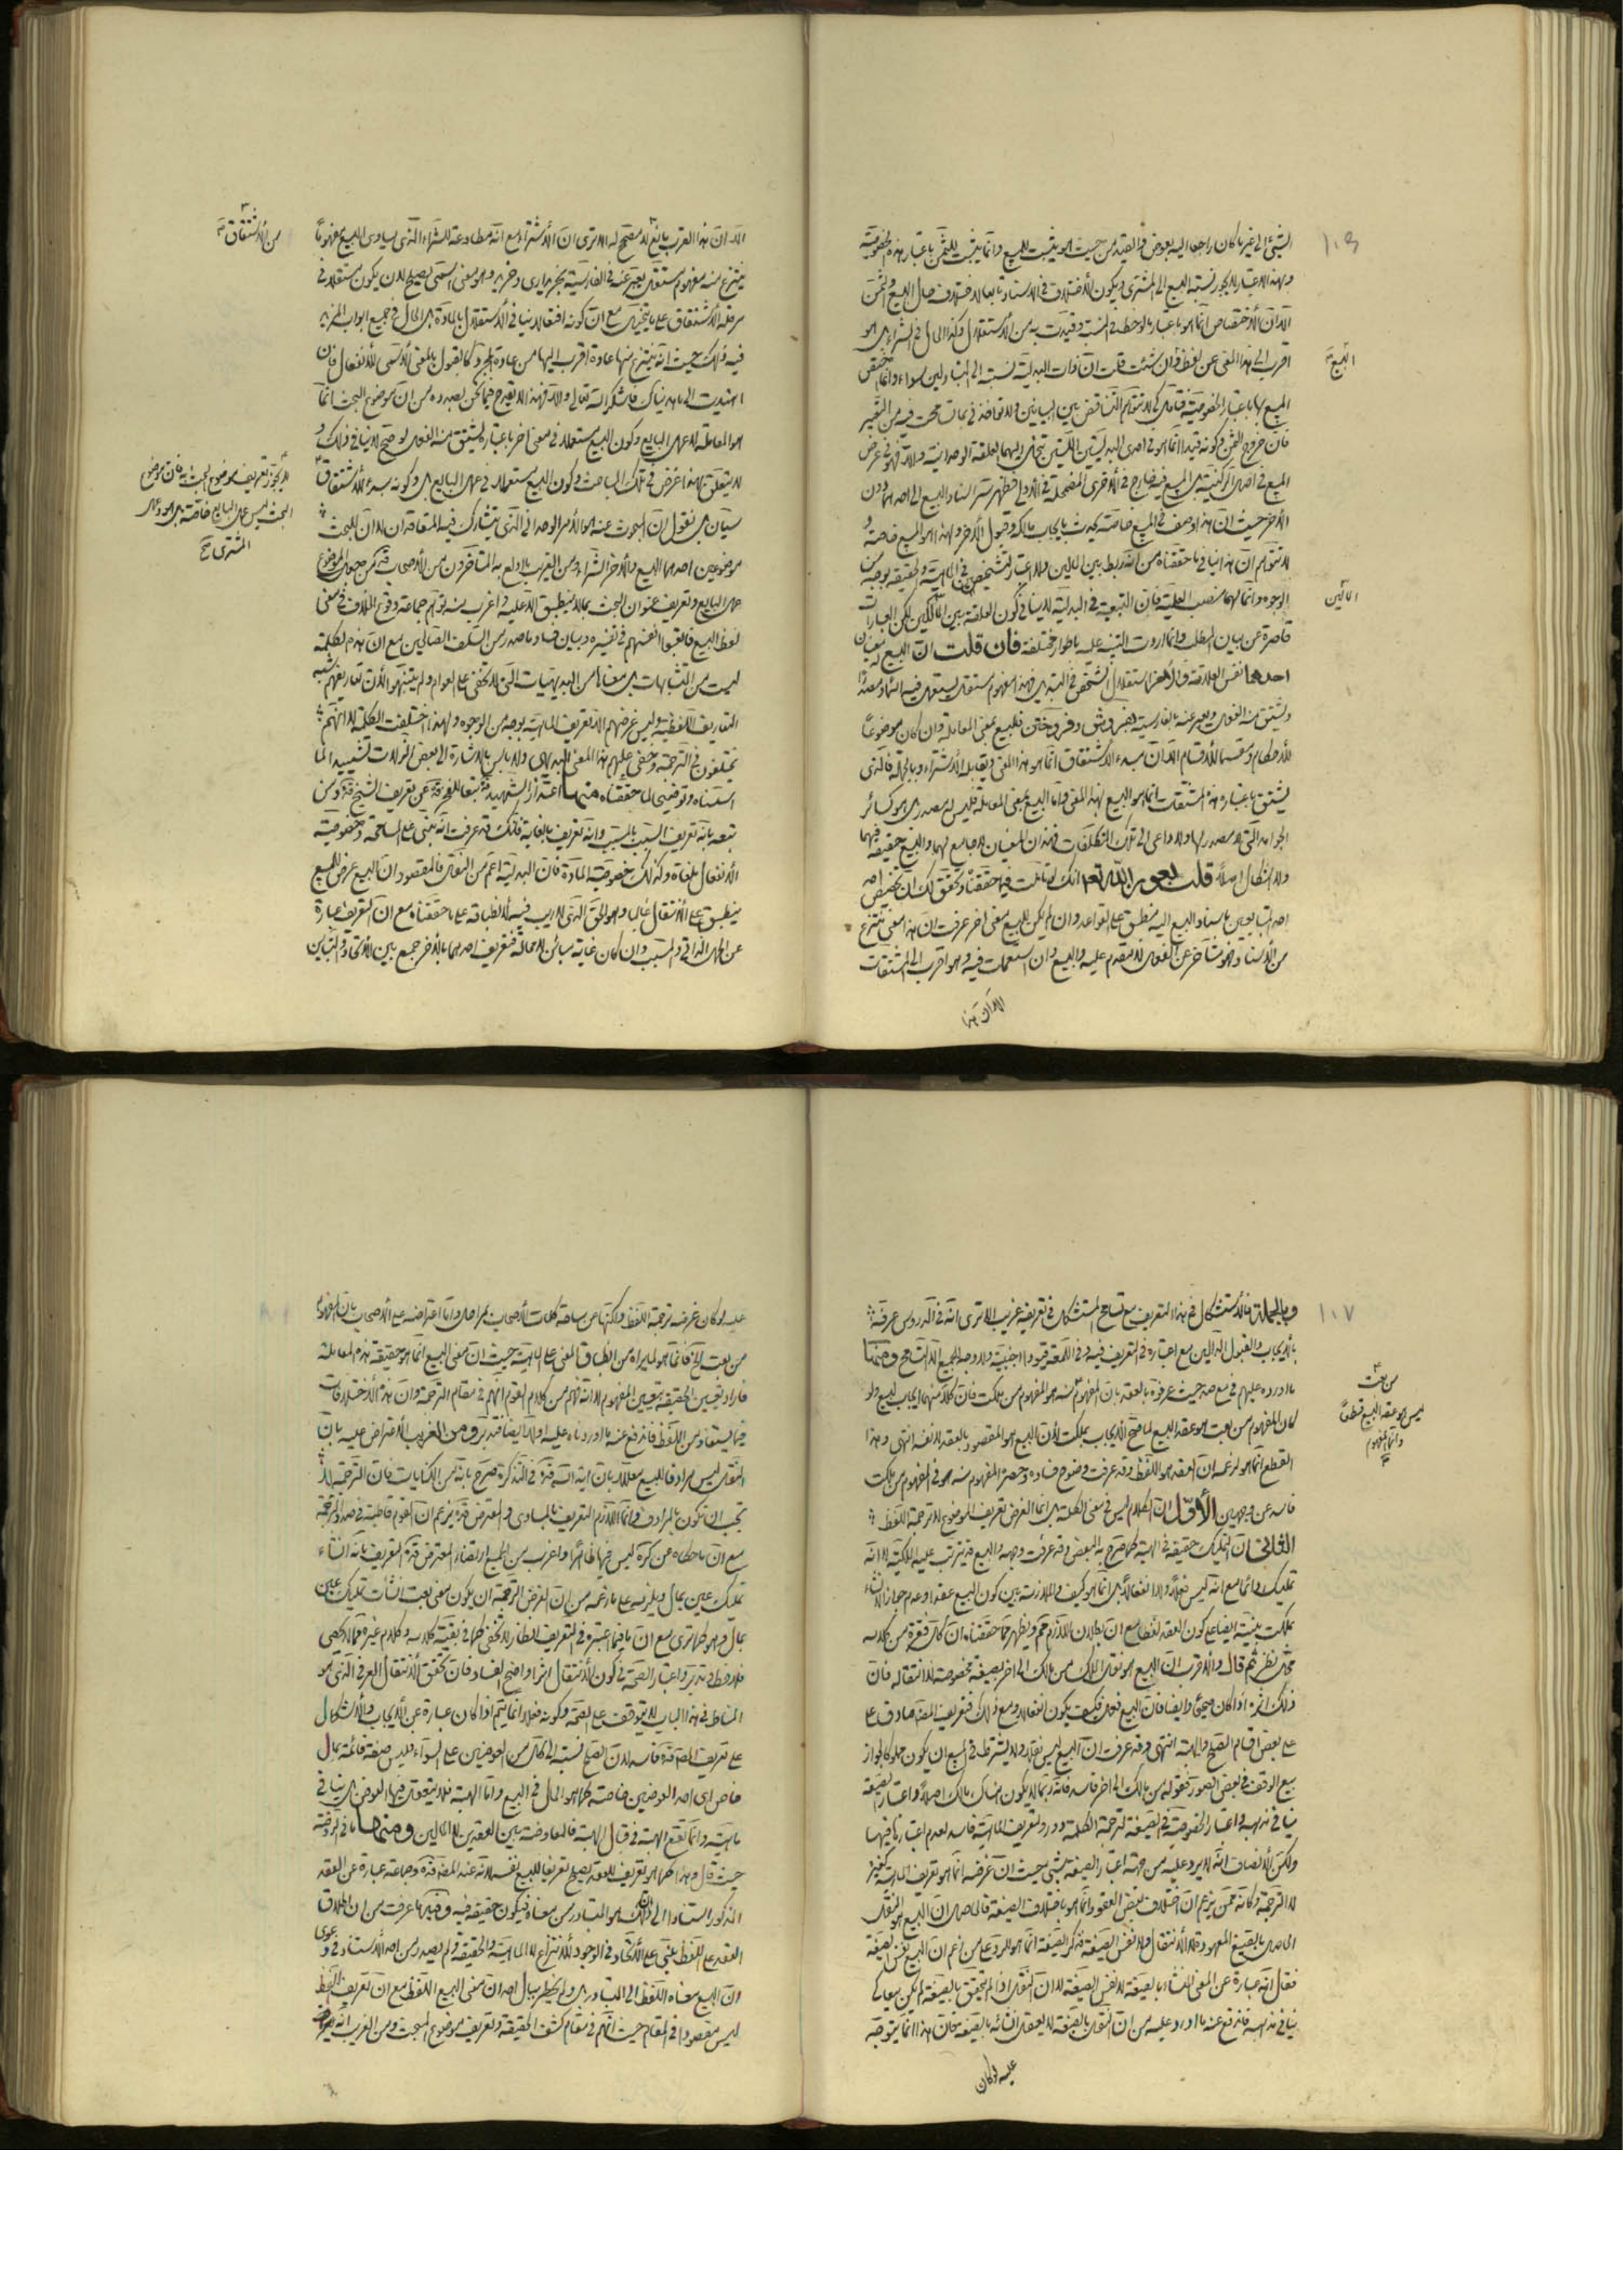 الشيئ الى غير ما كان راجعا اليه بعوض فالتقييد من حيث هو يثبت للمبيع وانما يثبت للثمن باعتبار هذه الخصوصية
وبهذا الاعتبار لا يجوز نسبة البيع الى المشترى ويكون الاختلاف فى الاسناد تابعا لاختلاف حال المبيع والثمن
الا ان الاختصاص انما هو باعتبار ما لوحظ فى النسبة وقيدت به من الاستقلال وكذا الحال فى الشراء بل هو
اقرب الى هذا المعنى عن لفظ وان شئت قلت ان ذات البدلية نسبته الى المتبادلين سواء وانما اختص
البيع
المبيع بها باعتبار الخصوصية فتأمل كى لا تتوهم التناقض بين البيانين ولا تؤاخذنى بما تسامحت فيه من التعبير
فان خروج الثمن وكونه قيدا انما هو فى احدى البدليتين اللتين تنحل اليهما العلقة الوحدانية والا فهو فى عرض
المبيع
الاخر حيث ان هذا وصف فى المبيع خاصة يحدث بايجاب مالكه وقبول الاخر وبهذا هو المبيع خاصة و
لا تتوهم ان هذا ينافى ما حققناه من انه ربط بين المالين ولا اعتبار لتشخص فى الماهية والحقيقة بوجه من
المالين
الوجوه وانما لهما منصب العلية فان التبعية فى البدلية لا ينافى كون العلقة بين المالكين لكن العبارات
قاصرة عن بيان المطلب وانما اردت التنبيه عليه باطوار مختلفة فان قلت ان البيع له معنيان
احدهما نفس العلاقة والاخر استقلال الشخص فى التبديل فهذا مفهوم مستقل يستعمل فيه البناء ومصدرا
ويشتق منه الفعل ويعبر عنه بالفارسية بفروش وفروختن فالبيع بمعنى المعاملة وان كان موضوعا
للاحكام ومقسما للاقسام الا ان مبدء الاشتقاق انما هو هذا المعنى ويقابله الاشتراء وبالجملة فالذى
يشتق باعتباره هذه المشتقات انما هو البيع بهذا المعنى واما البيع بمعنى المعاملة فليس له مصدر بل هو كسائر
الجوامد التى لا مصدر لها ولا داعى الى تلك التكلفات فهذان المعنيان لا جامع لهما والبيع حقيقة فيهما
ولا اشكال اصلا قلت بعون الله تعالى انك لو تأملت فيما حققناه وتحقق لك ان تخصيص احد
احد المتبايعين باسناد البيع اليه منطبق على القواعد وان لم يكن للبيع معنى اخر عرفت ان هذا معنى منتزع
من الاسناد وهو متأخر عن الفعل لا متقدم عليه والبيع وان استعملت فيه وهو اقرب الى المشتقات
الا ان هذا
الا ان هذا القرب بالغ لا مصحح له الا ترى ان الاشتراء مع انه مطاوعة الشراء الذى يساوى البيع مفهوما
من الاشتقاق
ينتزع منه مفهوم مستقل يعبر عنه فى الفارسية بخريدارى وخريد وهو معنى اسمى يصلح لان يكون مستقلا فى
مرحلة الاشتقاق على ما يتخيل مع ان كونه افتعالا ينافى الاستقلال بالمادة بل الحال فى جميع ابواب المزيد
فيه كذلك حيث انه ينتزع منها عادة اقرب اليها من عادة المجرد كما يقول بالمعنى الاسمى للانفعال فان
اهتديت الى ما هديناك فاشكر الله تعالى والا فهذا لا يقدح فيما نحن بصدده من ان موضوع البحث انما
هو المعاملة لا عمل البايع وكون البيع مستعملا فى معنى اخر باعتباره يشتق منه الفعل لو صح لا ينافى ذلك و
لا يتعلق بهذا غرض فى تلك المباحث وكون البيع مستعملا فى عمل البايع بل وكونه مبدء الاشتقاق
لا يجوز تعريف موضوع البحث به فان موضوع
البحث ليس عمل البايع خاصة بل هو وعمل
المشترى صح
سيان بل نقول ان المبحوث عنه هو الامر الوحدانى الذى يتشارك فيه المتعاقدان لا ان للبحث
موضوعين احدهما البيع والاخر الشراء ومن الغريب ما اولع به المتأخرون من الاصحاب قده من جعل الموضوع
عمل البايع وتعريف عنوان البحث بما لا ينطبق الا عليه واغرب منه توهم جماعة وقوع الخلاف فى معنى
لفظ البيع فاتعبوا انفسهم فى تفسيره وبيان فساد ما صدر من السلف الصالحين مع ان هذه الكلمة
ليست من المتشابهات بل معناها من البديهيات التى لا تخفى على العوام ولم يتنبهوا لان تعاريفهم شبه
التعاريف اللفظية وليس غرضهم الا تعريف الماهية بوجه من الوجوه ولهذا اختلفت الكلمة لا انهم
يختلفون فى الترجمة وخفى عليهم هذا المعنى البديهى ولا بأس بالاشارة الى بعض الزلات تشييدا لما
اسلفناه وتوضيحا لما حققناه منها اعتذار الشهيد قده تبعا للمحقق قده عن تعريف الشيخ قده ومن
تبعه بانه تعريف السبب بالمسبب وانه تعريف بالغاية فانك قد عرفت انه مبنى على المسامحة وخصوصية
الانتقال ملغاة وكذلك خصوصية المادة فان البدلية اعم من النقل فالمقصود ان البيع عرض للمبيع
ينطبق على الانتقال غالبا وهو الحق الذى لا ريب فيه لانطباقه على ما حققناه مع ان التعريف عبارة
عن الحمل الذاتى والمسبب وان كان غاية مباين لا محالة فتعريف احدهما بالاخر جمع بين الاتحاد والتباين
١٠٧
وبالجملة فالاستشكال فى هذا التعريف مع تسامح المستشكل فى تعريفه غريب الا ترى انه فى الدروس عرفه
بالايجاب والقبول الدالين مع اعتباره فى التعريف فيه وفى اللمعة قيودا اجنبية ولا وجه للجميع الا التسامح ومنها
ما اورده عليهم فى مع صد حيث عرفوه بالعقد بان المفهوم منه هو المفهوم من ملكت فان كلا منهما ايجاب للبيع ولو
من بعت
ليس هو عقد البيع قطعا
وانما المفهوم
كان المفهوم من بعت هو عقد البيع لما صح الايجاب بملكت لان البيع هو المقصود بالعقد لا نفسه انتهى وهذا
القطع انما هو لزعمه ان العقد هو اللفظ وقد عرفت وضوح فساده وحصره المفهوم منه هو فى المفهوم من ملكت
فاسد عن وجهين الاول ان الكلام ليس فى معنى الكلمة بل انما الغرض تعريف الموضوع لا ترجمة اللفظ
الثانى ان التمليك حقيقة فى الهبة كما صرح به البعض وقد عرفت وجهه والبيع قد يترتب عليه الملكية لا انه
تمليك دائما مع انه ليس فعلا ولا انفعالا بل انما هو كيف والملازمة بين كون البيع عقدا وعدم جواز انشاء
بملكت مبنية ايضا على كون العقد لفظا مع ان بطلان اللازم مم ويظهر مما حققناه ان كل فقرة من كلامه
محل نظر ثم قال والاقرب ان البيع هو نقل الملك من مالك الى اخر بصيغة مخصوصة لا انتقاله فان
ذلك اثره اذا كان صحيحا وايضا فان البيع فعل فكيف يكون انتقالا ومع ذلك فتعريف المصنف صادق على
على بعض اقسام الصلح والهبة انتهى وقد عرفت ان البيع ليس نقلا ولا يشترط فى المبيع ان يكون ملكا لجواز
بيع الوقف فى بعض الصور فقوله من مالك الى اخر فاسد فانه ربما لا يكون هناك مالك اصلا واعتبار الصيغة
ينافى مذهبه واعتبار الخصوصية فى الصيغة لترجمة الكلمة دور ولتعريف الماهية فاسد لعدم اعتبارها فيها
ولكن الانصاف انه لا يرد عليه من جهة اعتبار الصيغة شيئ حيث ان غرضه انما هو تعريف الماهية كغيره
لا الترجمة وكأنه ممن يزعم ان اختلاف بعض العقود انما هو باختلاف الصيغة فالحاصل ان البيع هو النقل
الحاصل بالصيغ المعهودة لا الانتقال ولا نفس الصيغة فذكر الصيغة انما هو للرد على من زعم ان البيع نفس الصيغة
فقال انه عبارة عن المعنى المنشاء بالصيغة لا نفس الصيغة لا ان النقل اذا لم يتحقق بالصيغة لم يكن بيعا كى
ينافى مذهبه فاندفع عنه ما اورد عليه من ان النقل بالصيغة لا يعقل انشائه بالصيغة فان هذا انما يتوجه
عليه لو كان
عليه لو كان غرضه ترجمة اللفظ ولكنها عن ساحة كلمات الاصحاب بمراحل واما اعتراضه على الاصحاب بان المفهوم
من بعت الخ فانما هو لما يراه من انطباق المعنى على الماهية حيث ان معنى البيع انما هو حقيقة هذه المعاملة
فاراد تعيين الحقيقة بتعيين المفهوم لا انه توهم من كلام القوم انهم فى مقام الترجمة وان هذه الاختلافات
فيما يستفاد من اللفظ فاندفع عنه ما اوردناه عليه اولا ايضا فتدبر ومن الغريب الاعتراض عليه بان
النقل ليس مرادفا للبيع معللا بان اية الله قده فى التذكرة صرح بانه من الكنايات فان الترجمة لا
تجب ان تكون بالمرادف وانما اللازم التعريف بالمساوى والمعترض قده يزعم ان القوم قاطبة فى صدد الترجمة
مع ان ما حكاه عن كره ليس فيها لها اثر واغرب من الجميع ارتضاء المعترض قده التعريف بانه انشاء
تمليك عين بمال ويلزمه على ما زعمه من ان الغرض الترجمة ان يكون معنى بعت انشأت تمليك عين
بمال وهو كما ترى مع ان ما فيما اعتبره فى التعريف انظار لا تخفى كما فى بقية كلامه وكلام غيره مما لا تحصى
فلاحظ وتدبر واعتبار الصحة فى كون الانتقال اثرا واضح الفساد فان تحقق الانتقال العرفى الذى هو
المناط فى هذا الباب لا يتوقف على الصحة وكونه فعلا انما يتم اذا كان عبارة عن الايجاب والاشكال
على تعريف المصنف قده فاسد لان الصلح نسبته الى كل من العوضين على السواء فليس صفة قائمة بمال
خاص اى احد العوضين خاصة كما هو الحال فى البيع واما الهبة فلا يتعقل فيها العوض بل ينافى
ماهيته وانما تقع الهبة فى قبال الهبة فالمعاوضة بين العقدين لا المالين ومنها ما فى الروضة
حيث قال وهذا كما هو تعريف للعقد يصلح تعريفا للبيع نفسه لانه عند المصنف قده وجماعة عبارة عن العقد
المذكور استنادا الى ان ذلك هو المتبادر من معناه فيكون حقيقة فيه وفيه ما عرفت من ان اطلاق
العقد على اللفظ يبتنى على الاتحاد فى الوجود للانتزاع لا الماهية والحقيقة ولم يصدر من احد الاستناد فى دعوى
ان البيع معناه اللفظ الى التبادر بل ولم يخطر ببال احد ان معنى البيع اللفظ مع ان تعريف اللفظ
ليس مقصودا فى المقام حيث انهم فى مقام كشف الحقيقة وتعريف موضوع المبحث ومن الغريب انه